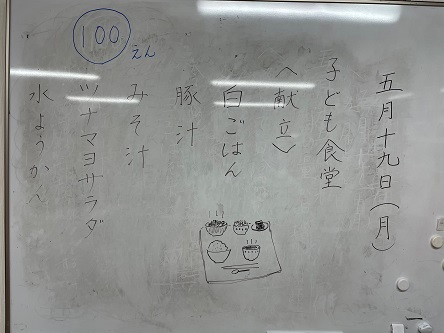 五月十九日(月)
子ども食堂
〈献立〉
白ごはん
豚汁
みそ汁
ツナマヨサラダ
水ようかん
100えん